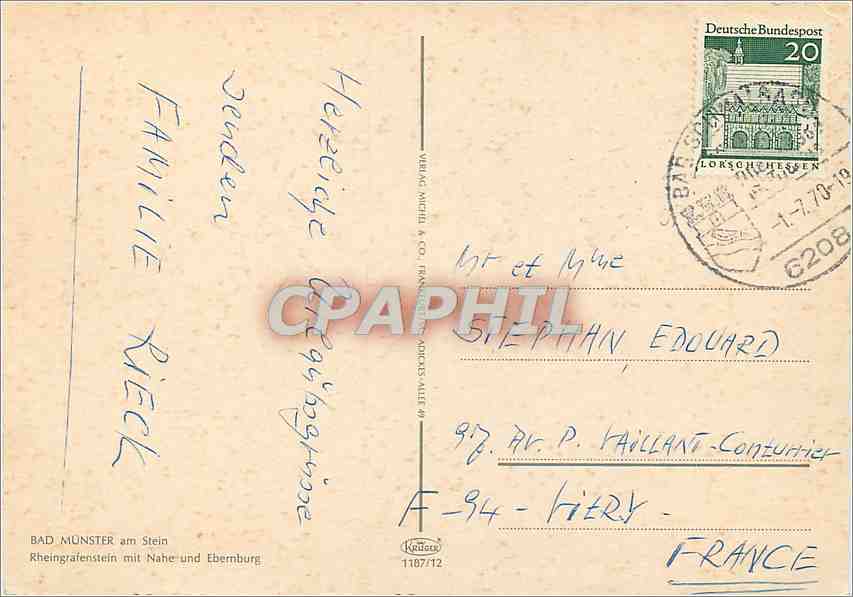 Herzliche Urlaubsgrüsse
senden
FAMILIE RIECK
BAD MÜNSTER am Stein
Rheingrafenstein mit Nahe und Ebernburg
VERLAG MICHEL & CO., FRANKFURT ADICKES-ALLEE 49
KRÜGER
1187/12
CPAPHIL
Deutsche Bundespost
20
LORSCH/HESSEN
BAD SCHWALBACH
-1.-7.70-19
6208
Mr et Mme
STEPHAN, EDOUARD
97, AV. P. VAILLANT-Couturier
F-94-VITRY-
FRANCE